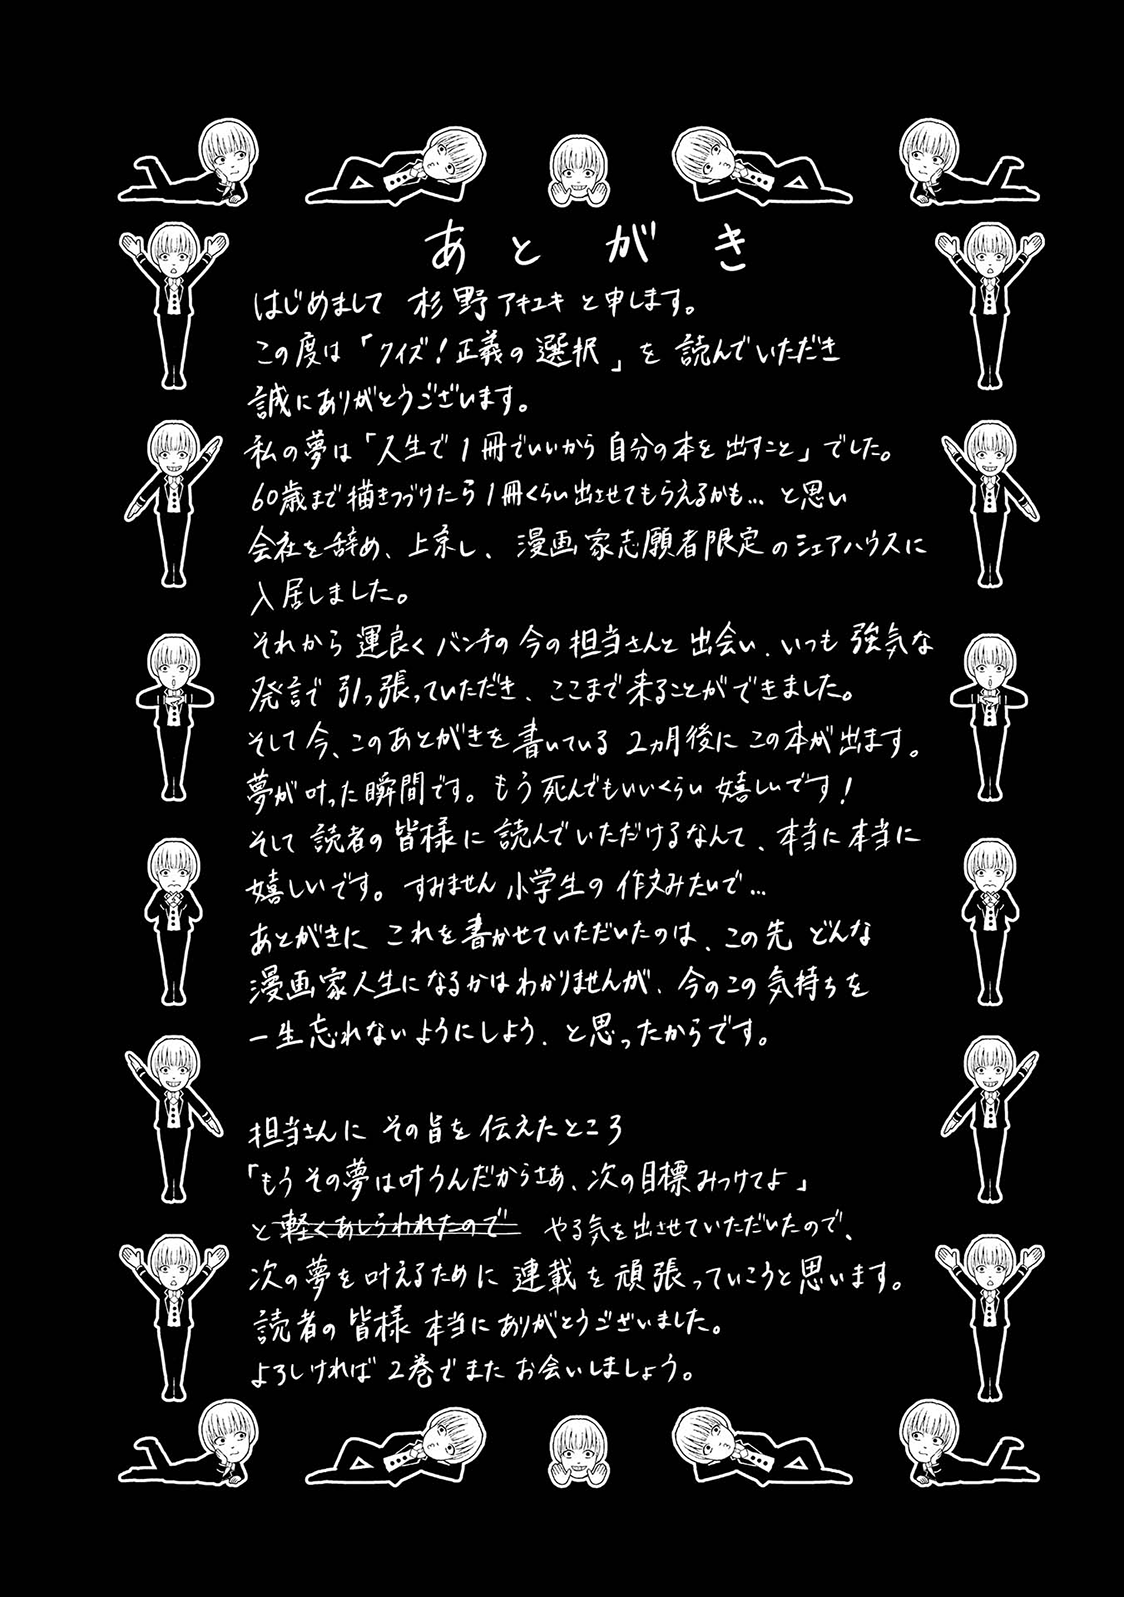 あとがき
はじめまして 杉野アキユキと申します。
この度は「クイズ!正義の選択」を読んでいただき
誠にありがとうございます。
私の夢は「人生で1冊でいいから自分の本を出すこと」でした。
60歳まで描きつづけたら1冊くらい出させてもらえるかも…と思い
会社を辞め、上京し、漫画家志願者限定のシェアハウスに
入居しました。
それから運良くバンチの今の担当さんと出会い、いつも強気な
発言で引っ張っていただき、ここまで来ることができました。
そして今、このあとがきを書いている2ヵ月後にこの本が出ます。
夢が叶った瞬間です。もう死んでもいいくらい嬉しいです!
そして読者の皆様に読んでいただけるなんて、本当に本当に
嬉しいです。すみません小学生の作文みたいで…
あとがきにこれを書かせていただいたのは、この先どんな
漫画家人生になるかはわかりませんが、今のこの気持ちを
一生忘れないようにしよう、と思ったからです。
担当さんにその旨を伝えたところ
「もうその夢は叶うんだからさあ、次の目標みつけてよ」
と軽くあしらわれたので やる気を出させていただいたので、
次の夢を叶えるために連載を頑張っていこうと思います。
読者の皆様本当にありがとうございました。
よろしければ2巻でまたお会いしましょう。